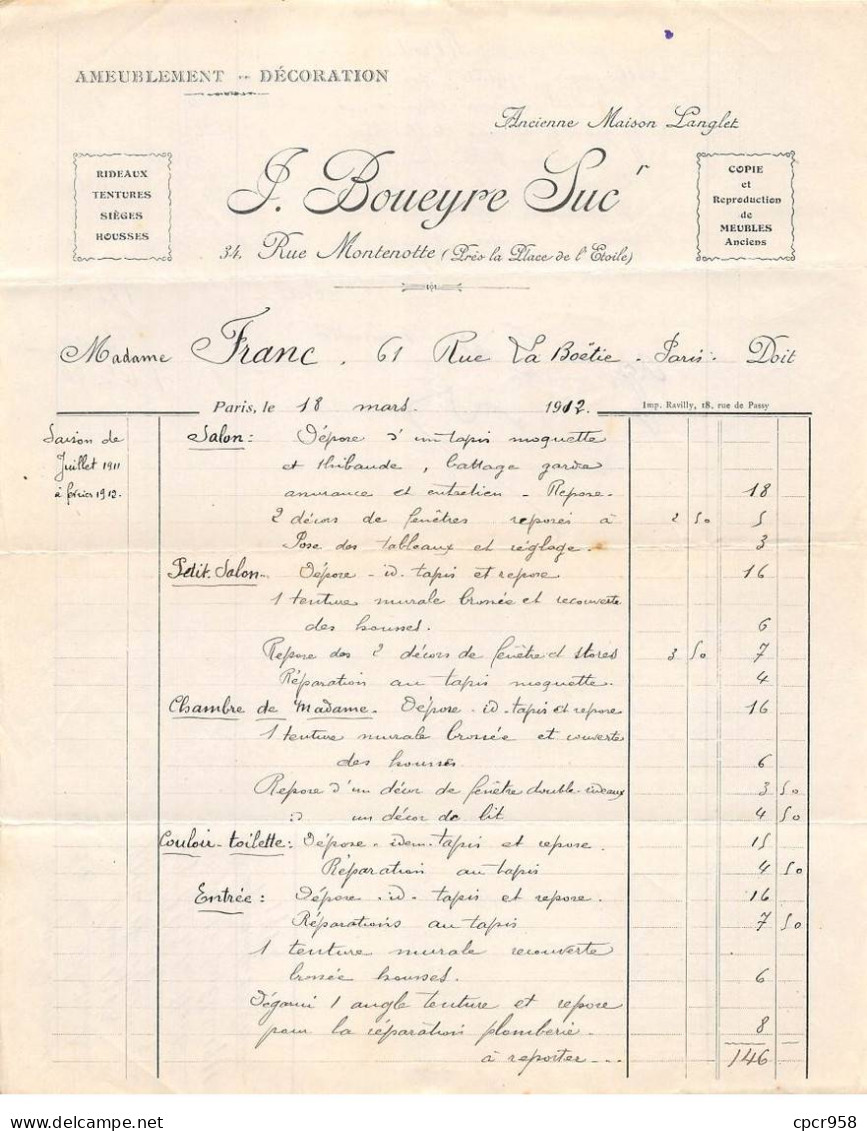 AMEUBLEMENT -- DÉCORATION
Ancienne Maison Langlet
RIDEAUX
TENTURES
SIÈGES
HOUSSES
J. Boueyre Sucr
COPIE
et
Reproduction
de
MEUBLES
Anciens
34, Rue Montenotte (Près la Place de l'Etoile)
Madame Franc, 61 Rue La Boëtie - Paris. Doit
Paris, le 18 mars 1912.
Imp. Ravilly, 18, rue de Passy
Saison de
Juillet 1911
à février 1912.
Salon: Dépose d'un tapis moquette
et thibaude, battage garde
assurance et entretien - Repose. 18
2 décors de fenêtres reposés à 2 50 5
Pose des tableaux et réglage. 3
Petit-Salon. Dépose - id. tapis et repose 16
1 tenture murale brossée et recouverte
des housses. 6
Repose des 2 décors de fenêtre et stores 3 50 7
Réparation au tapis moquette. 4
Chambre de Madame. Dépose - id. tapis et repose 16
1 tenture murale brossée et couverte
des housses 6
Repose d'un décor de fenêtre double-rideaux 3 50
un décor de lit 4 50
Couloir-toilette: Dépose - idem. tapis et repose. 15
Réparation au tapis 4 50
Entrée: Dépose - id. tapis et repose. 16
Réparations au tapis. 7 50
1 tenture murale recouverte
brossée housses. 6
Dégarni 1 angle tenture et repose
pour la réparation plomberie. 8
à reporter --- 146
cpcr958